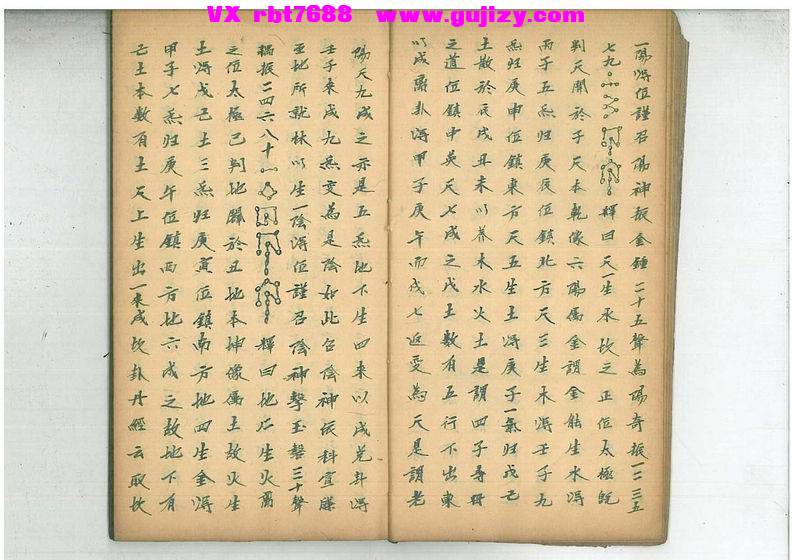 VX rbt7688 www.gujizy.com
一陽得位謹召陽神振金鍾二十五聲為陽奇振一二三五
七九 輝曰天一生水坎之正位太極既
判天開於子天本乾像六陽属金謂金能生水得
丙子五炁归庚辰位鎮北方天三生木得壬子九
炁归庚申位鎮東方天五生土得庚子一氣归戊己
土散於辰戌丑未以养木水火土是謂四子尋母
之道位鎮中英天七成之戊土數有五行下出東
以成离卦得甲子庚午而成七返变為天是謂老
陽天九成之亦是五炁地下生四來以成兌卦得
壬子來成九炁变為是陰如此召陰神依科宣疎
至地所就林以生一陰得位謹召陰神擊玉磬三十聲
稱振二四六八十 輝曰地二生火离
之位太極已判地闢於丑地本坤像属土故火生
土得戊己土三炁归庚寅位鎮南方地四生金得
甲子七炁归庚午位鎮西方地六成之故地下有
己土本數有土天上生出一來成坎卦丹經云取坎